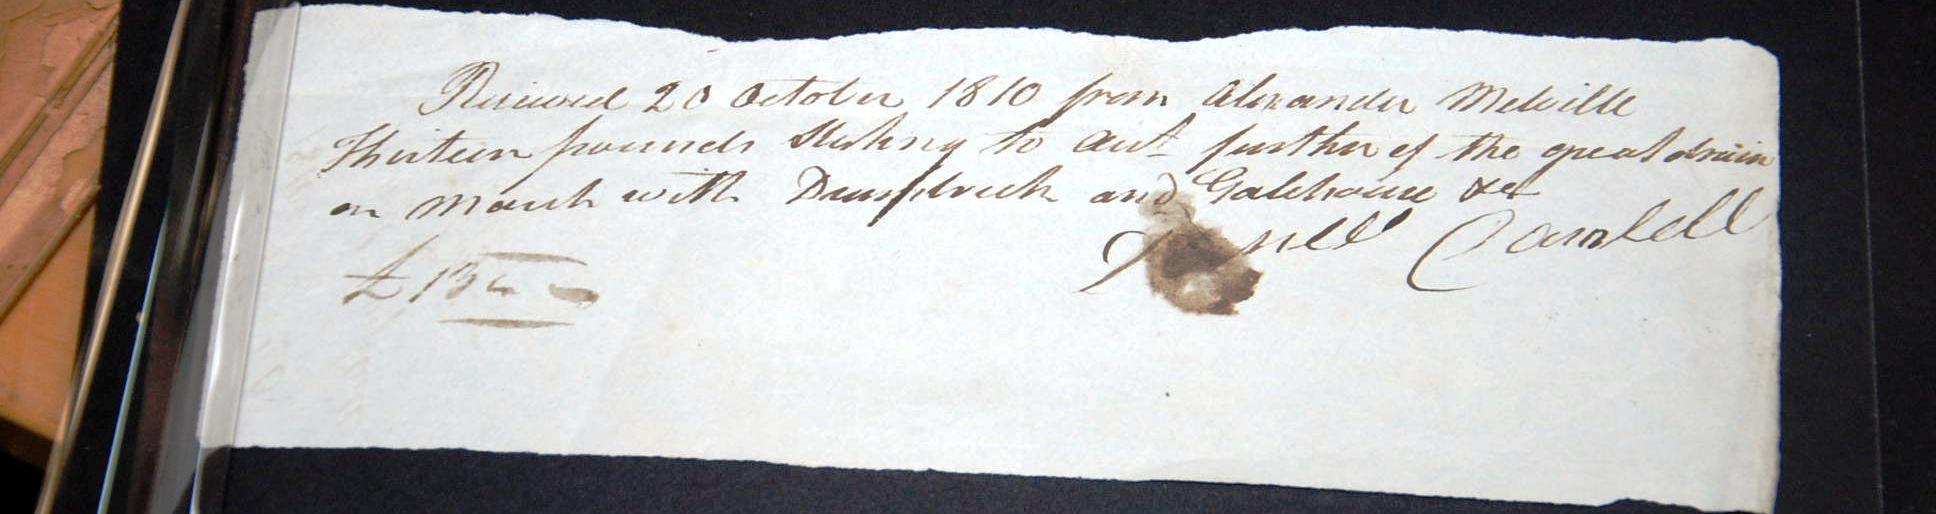 Received 20 October 1810 from Alexander Melville
Thirteen pounds Sterling to Acct further of the great drain
on March with and Gatehouse &c
Campbell
£13